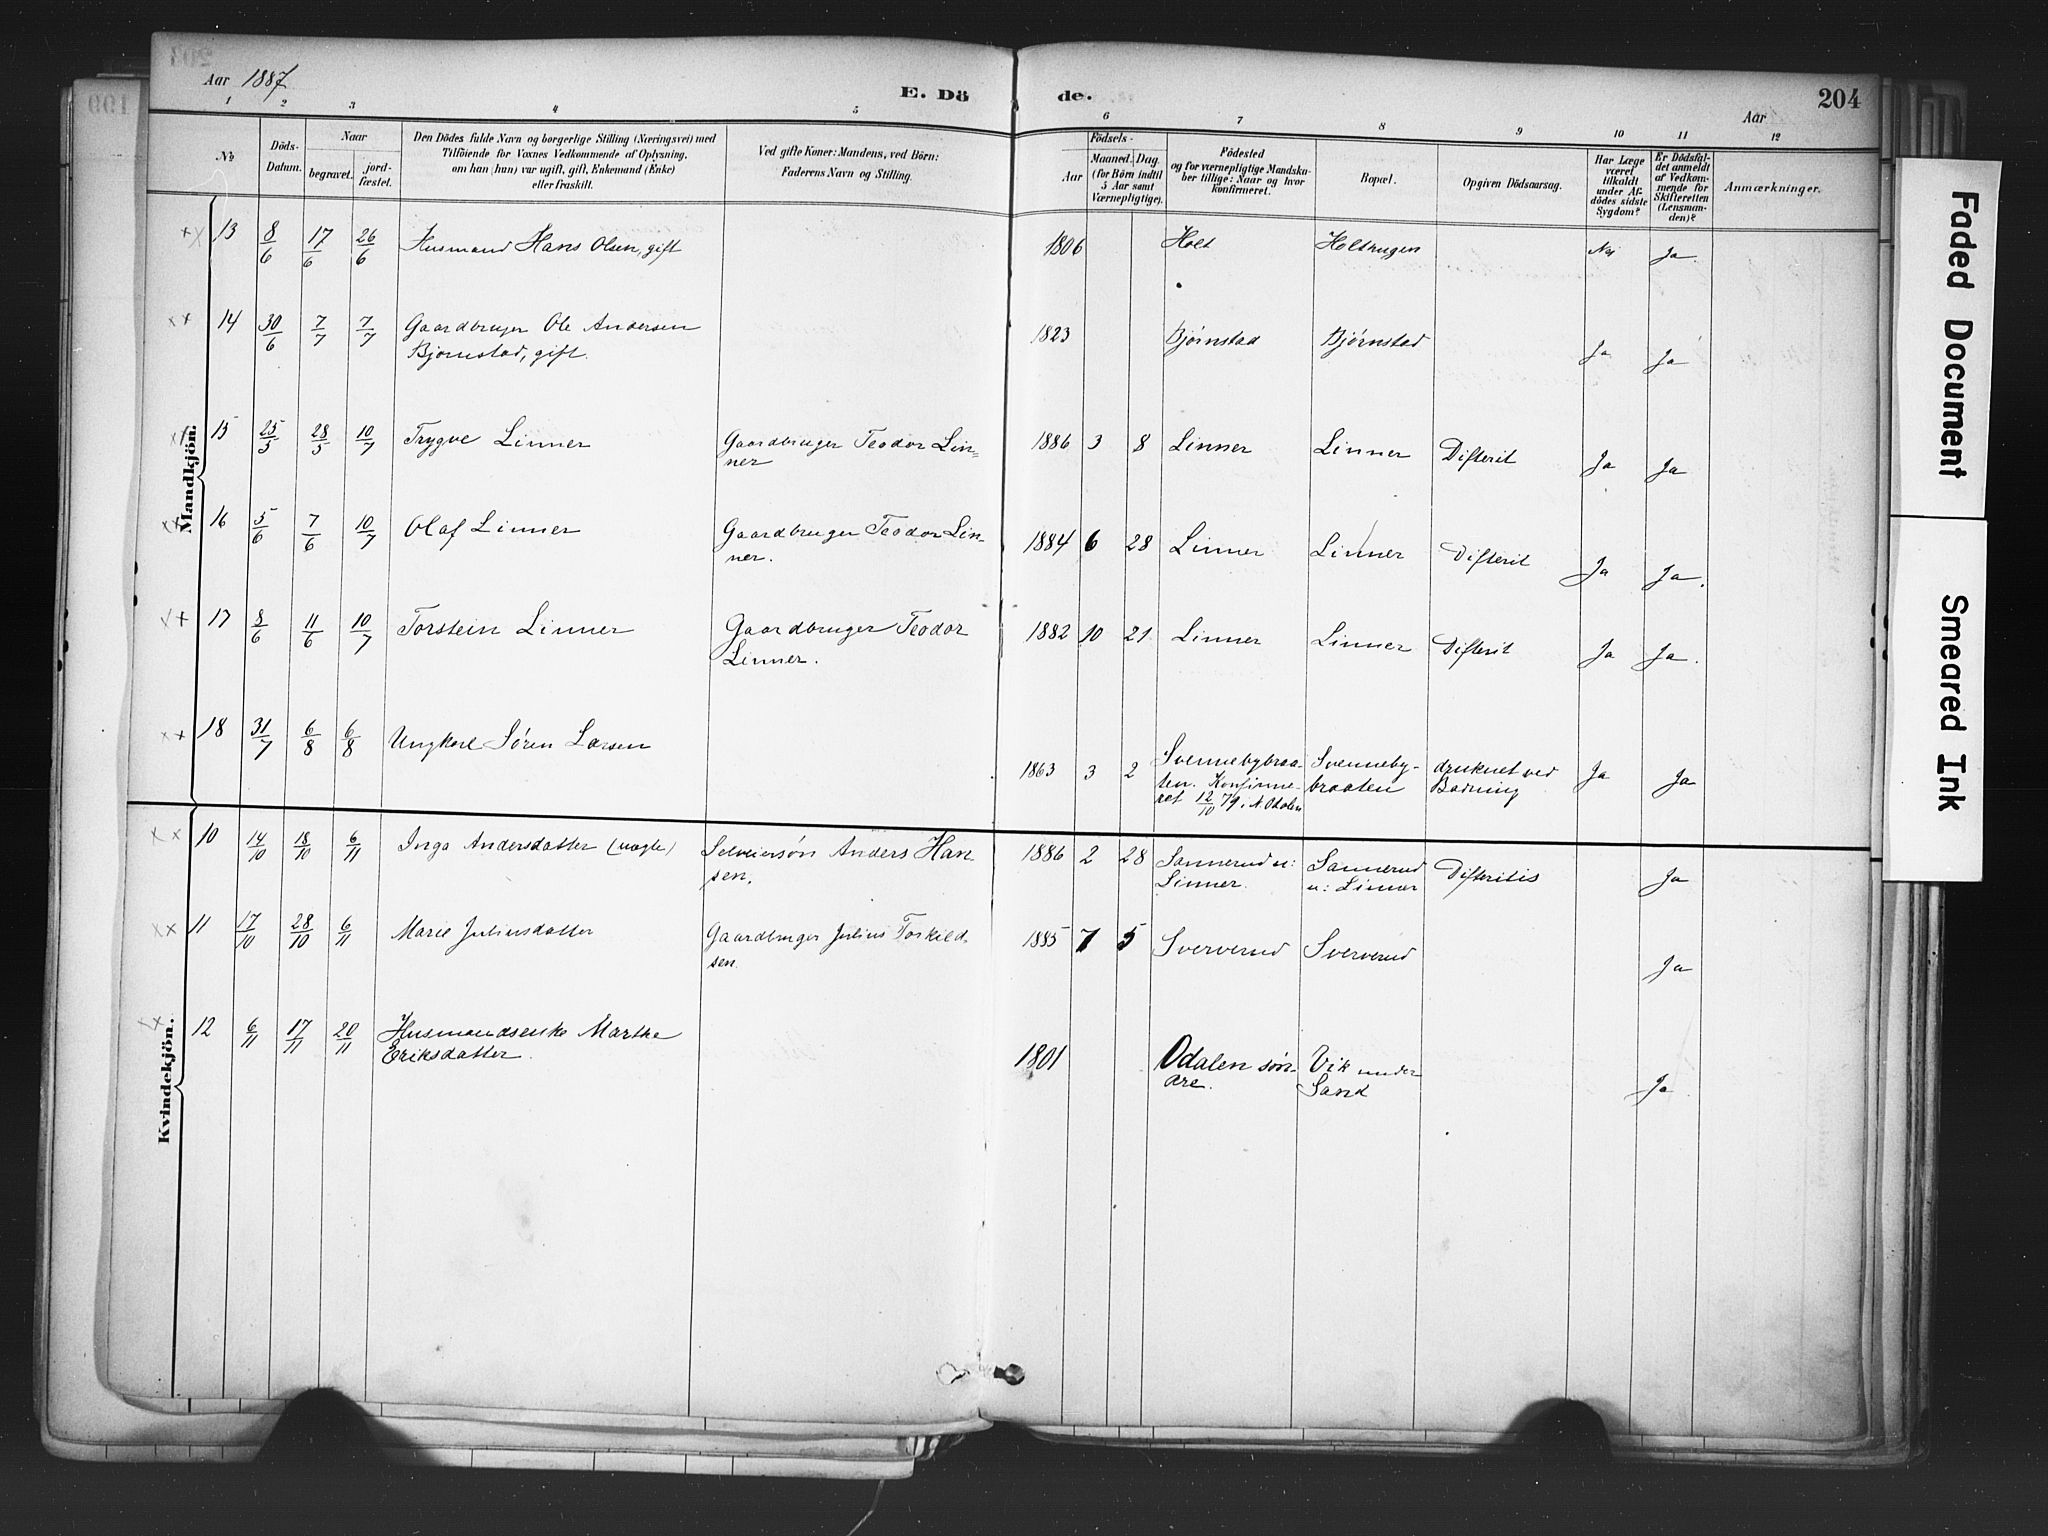 Aar 1887.
E. Dö de.
Aar
204
1 2 3 4 5 6 7 8 9 10 11 12
No
Döds-Datum.
Naar
begravet.
jord-fæstet.
Den Dödes fulde Navn og borgerlige Stilling (Næringsvei) med
Tilföiende for Voxnes Vedkommende af Oplysning,
om han (hun) var ugift, gift, Enkemand (Enke)
eller fraskilt.
Ved gifte Koner: Mandens, ved Börn:
Faderens Navn og Stilling.
Födsels-
Aar
Maaned. Dag.
(for Börn indtil
5 Aar samt
Værnepligtige).
Födested
og for værnepligtige Mandska-
ber tillige: Naar og hvor
konfirmeret.
Bopæl.
Opgiven Dödsaarsag.
Har Læge
været
tilkaldt
under Af-
dödes sidste
Sygdom?
Er Dödsfal-
det anmeldt
af Vedkom-
mende for
Skifteretten
(Lensman-
den)?
Anmærkninger.
Mandkjön.
13 8/6 17/6 26/6 Husmand Hans Olsen, gift 1806 Holt Nei Ja
14 30/6 7/7 7/7 Gaardbruger Ole Andersen 1823 Bjørnstad Bjørnstad Ja Ja
Bjørnstad, gift.
15 25/5 28/5 10/7 Trygve Linner Gaardbruger Teodor Lin= 1886 3 8 Linner Linner Difterit Ja Ja
ner
16 5/6 7/6 10/7 Olaf Linner Gaardbruger Teodor Lin- 1884 6 28 Linner Linner Difterit Ja Ja.
ner.
17 8/6 11/6 10/7 Torstein Linner Gaardbruger Teodor 1882 10 21 Linner Linner Difterit Ja Ja.
Linner.
18 31/7 6/8 6/8 Ungkarl Søren Larsen 1863 3 2 Svennebybraa- Svenneby- druknet ved Ja Ja
ten. Konfirme- braaten Badning
ret 12/10 79 i N. Odalen
Kvindekjön.
10 14/10 18/10 6/11 Inga Andersdatter (uægte) Selveiersøn Anders Han 1886 2 28 Sannerud u: Sannerud Difteritis Ja
sen. Linner. u: Linner
11 17/10 28/10 6/11 Marie Juliusdatter Gaardbruger Julius Torkild 1885 7 5 Sververud Sververud Ja
sen.
12 6/11 17/11 20/11 Husmandsenke Marthe 1801 Odalen søn- Vik under Ja
Eriksdatter. dre. Sand
Faded Document
Smeared Ink